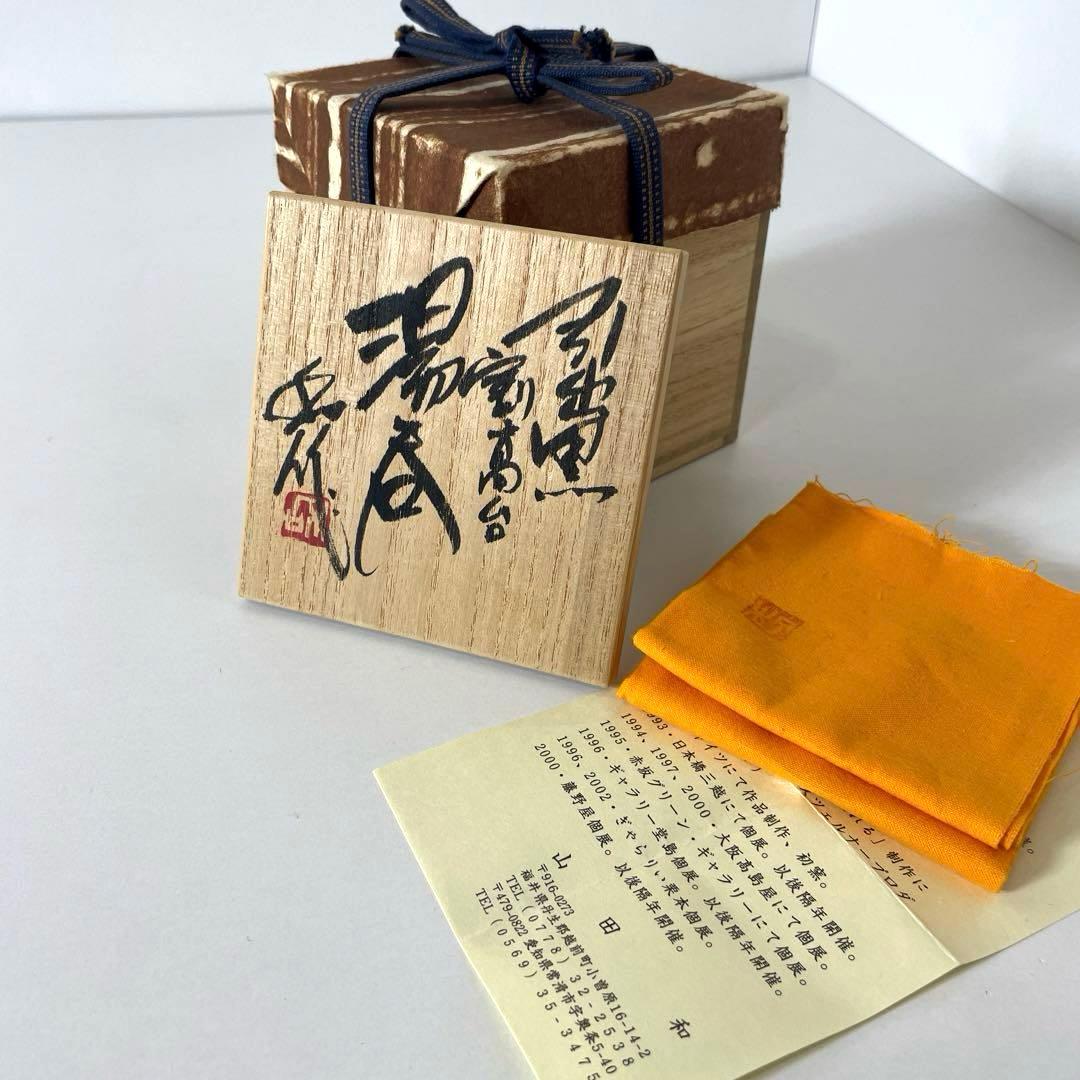 引出黒
割高台
湯呑
ツェルナープロダ
る」制作に
イツにて作品制作、初窯。
1993・日本橋三越にて個展。以後隔年開催。
1994、1997、2000・大阪髙島屋にて個展。
1995・赤坂グリーン・ギャラリーにて個展。
1996・ギャラリー堂島個展。以後隔年開催。
1996、2002・ぎゃらりい栗本個展。
2000・藤野屋個展。以後隔年開催。
山田和
〒916-0273
福井県丹生郡越前町小曽原16-14-2
TEL(0778)32-2538
〒479-0822 愛知県常滑市字奥条5-40
TEL(0569)35-3475